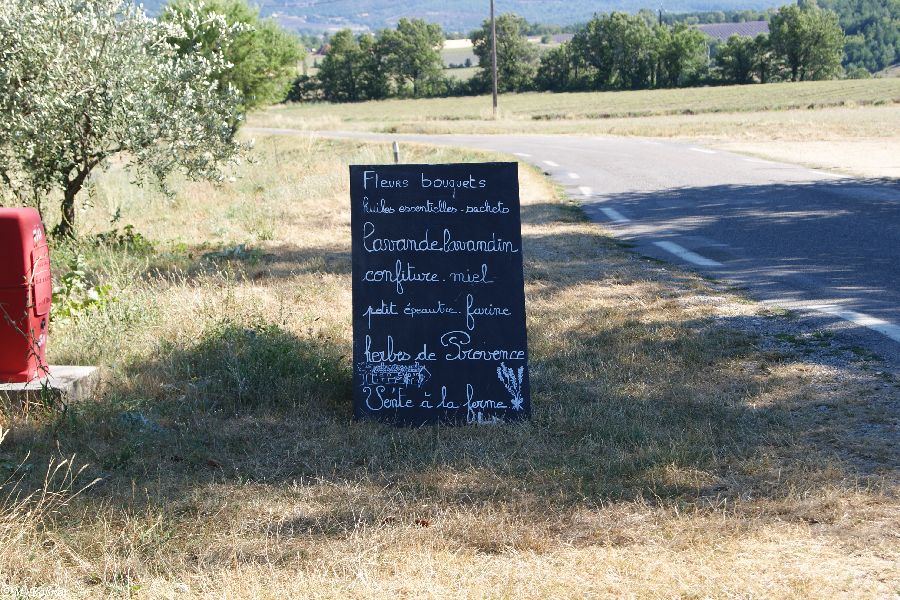 Fleurs bouquets
huiles essentielles - sachets
Lavande lavandin
confiture - miel
petit épeautre - farine
herbes de Provence
Vente à la ferme